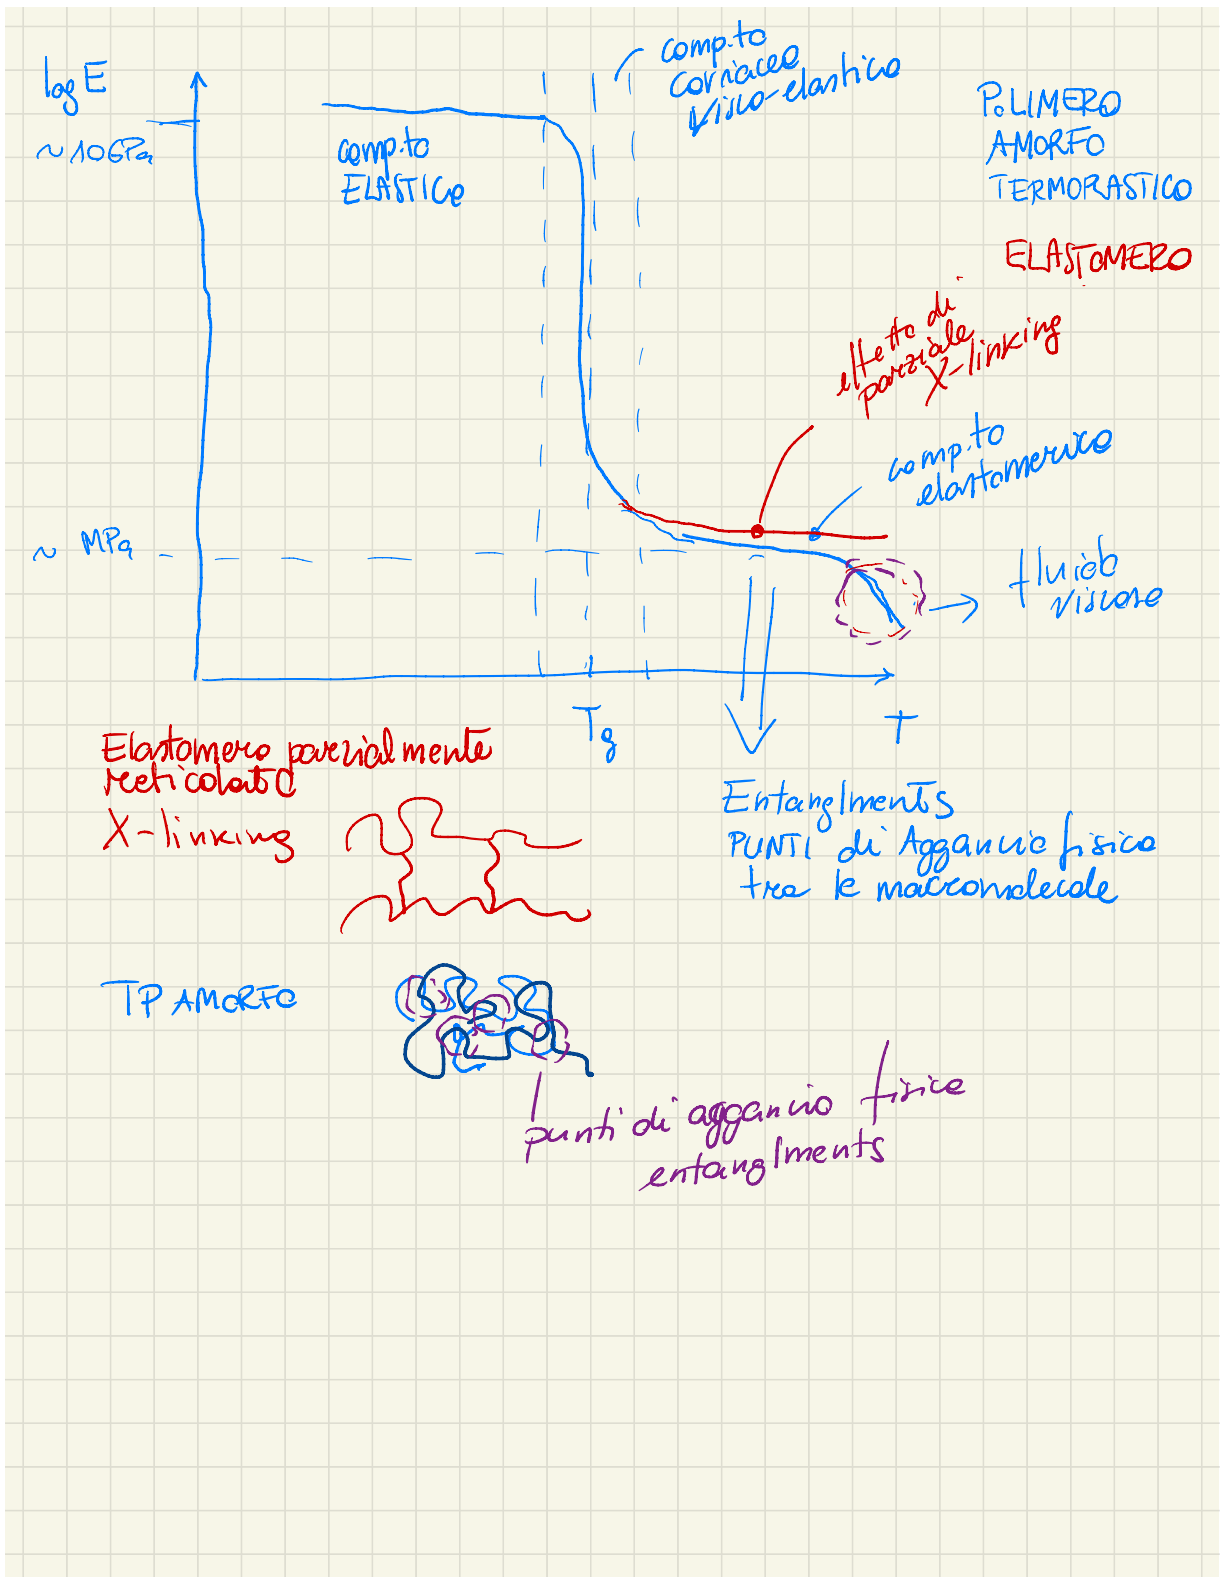 log E
~10GPa
comp.to
ELASTICO
comp.to
coriaceo
visco-elastico
POLIMERO
AMORFO
TERMOPLASTICO
ELASTOMERO
effetto di
parziale
X-linking
comp.to
elastomerico
~ MPa
fluido
viscoso
Tg
T
Elastomero parzialmente
reticolato
X-linking
Entanglments
PUNTI di Aggancio fisico
tra le macromolecole
TP AMORFO
punti di aggancio fisico
entanglments